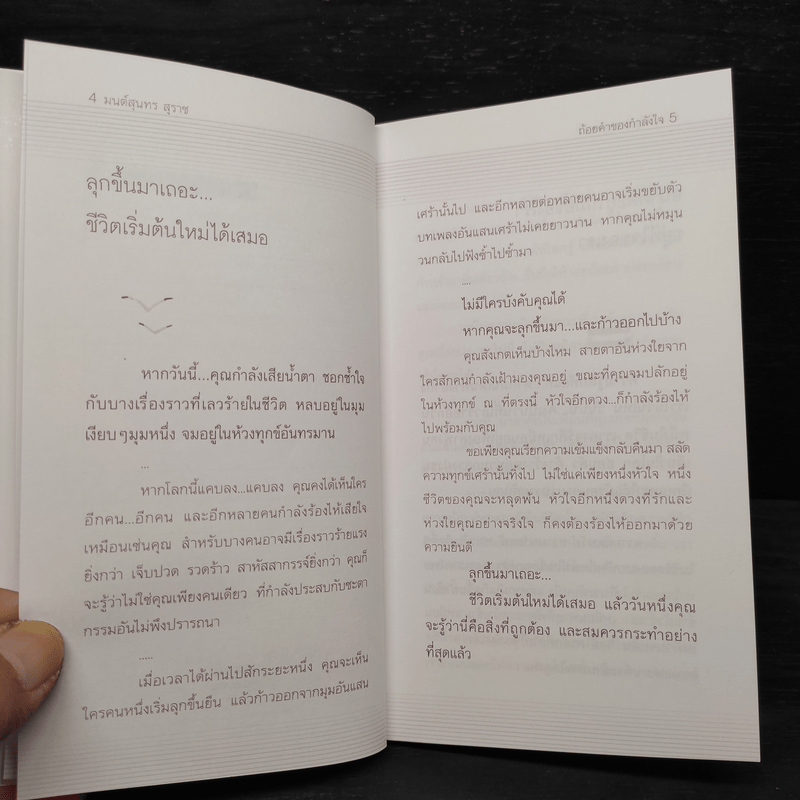 4 มนต์สุนทร สุราช
ลุกขึ้นมาเถอะ...
ชีวิตเริ่มต้นใหม่ได้เสมอ
หากวันนี้...คุณกำลังเสียน้ำตา ชอกช้ำใจ
กับบางเรื่องราวที่เลวร้ายในชีวิต หลบอยู่ในมุม
เงียบๆมุมหนึ่ง จมอยู่ในห้วงทุกข์อันทรมาน
...
หากโลกนี้แคบลง...แคบลง คุณคงได้เห็นใคร
อีกคน...อีกคน และอีกหลายคนกำลังร้องไห้เสียใจ
เหมือนเช่นคุณ สำหรับบางคนอาจมีเรื่องราวร้ายแรง
ยิ่งกว่า เจ็บปวด รวดร้าว สาหัสสากรรจ์ยิ่งกว่า คุณก็
จะรู้ว่าไม่ใช่คุณเพียงคนเดียว ที่กำลังประสบกับชะตา
กรรมอันไม่พึงปรารถนา
.....
เมื่อเวลาได้ผ่านไปสักระยะหนึ่ง คุณจะเห็น
ใครคนหนึ่งเริ่มลุกขึ้นยืน แล้วก้าวออกจากมุมอันแสน
ถ้อยคำของกำลังใจ 5
เศร้านั้นไป และอีกหลายต่อหลายคนอาจเริ่มขยับตัว
บทเพลงอันแสนเศร้าไม่เคยยาวนาน หากคุณไม่หมุน
วนกลับไปฟังซ้ำไปซ้ำมา
....
ไม่มีใครบังคับคุณได้
หากคุณจะลุกขึ้นมา...และก้าวออกไปบ้าง
คุณสังเกตเห็นบ้างไหม สายตาอันห่วงใยจาก
ใครสักคนกำลังเฝ้ามองคุณอยู่ ขณะที่คุณจมปลักอยู่
ในห้วงทุกข์ ณ ที่ตรงนี้ หัวใจอีกดวง...ก็กำลังร้องไห้
ไปพร้อมกับคุณ
ขอเพียงคุณเรียกความเข้มแข็งกลับคืนมา สลัด
ความทุกข์เศร้านั้นทิ้งไป ไม่ใช่แค่เพียงหนึ่งหัวใจ หนึ่ง
ชีวิตของคุณจะหลุดพ้น หัวใจอีกหนึ่งดวงที่รักและ
ห่วงใยคุณอย่างจริงใจ ก็คงต้องร้องไห้ออกมาด้วย
ความยินดี
ลุกขึ้นมาเถอะ...
ชีวิตเริ่มต้นใหม่ได้เสมอ แล้ววันหนึ่งคุณ
จะรู้ว่านี่คือสิ่งที่ถูกต้อง และสมควรกระทำอย่าง
ที่สุดแล้ว